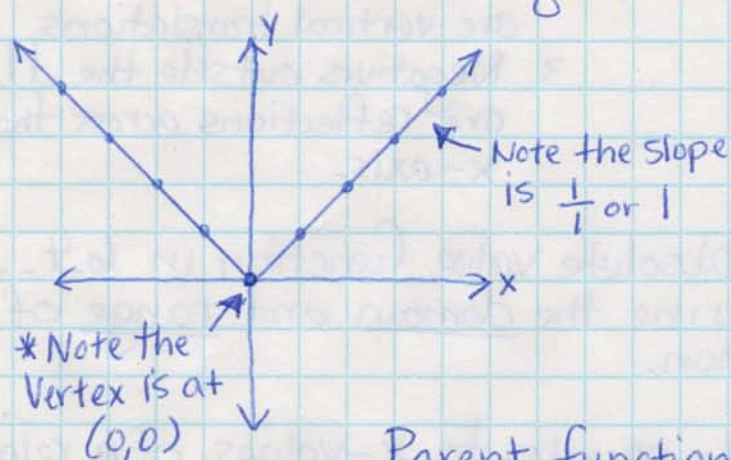 y
Note the slope
is 1/1 or 1
x
*Note the
Vertex is at
(0,0)
Parent function